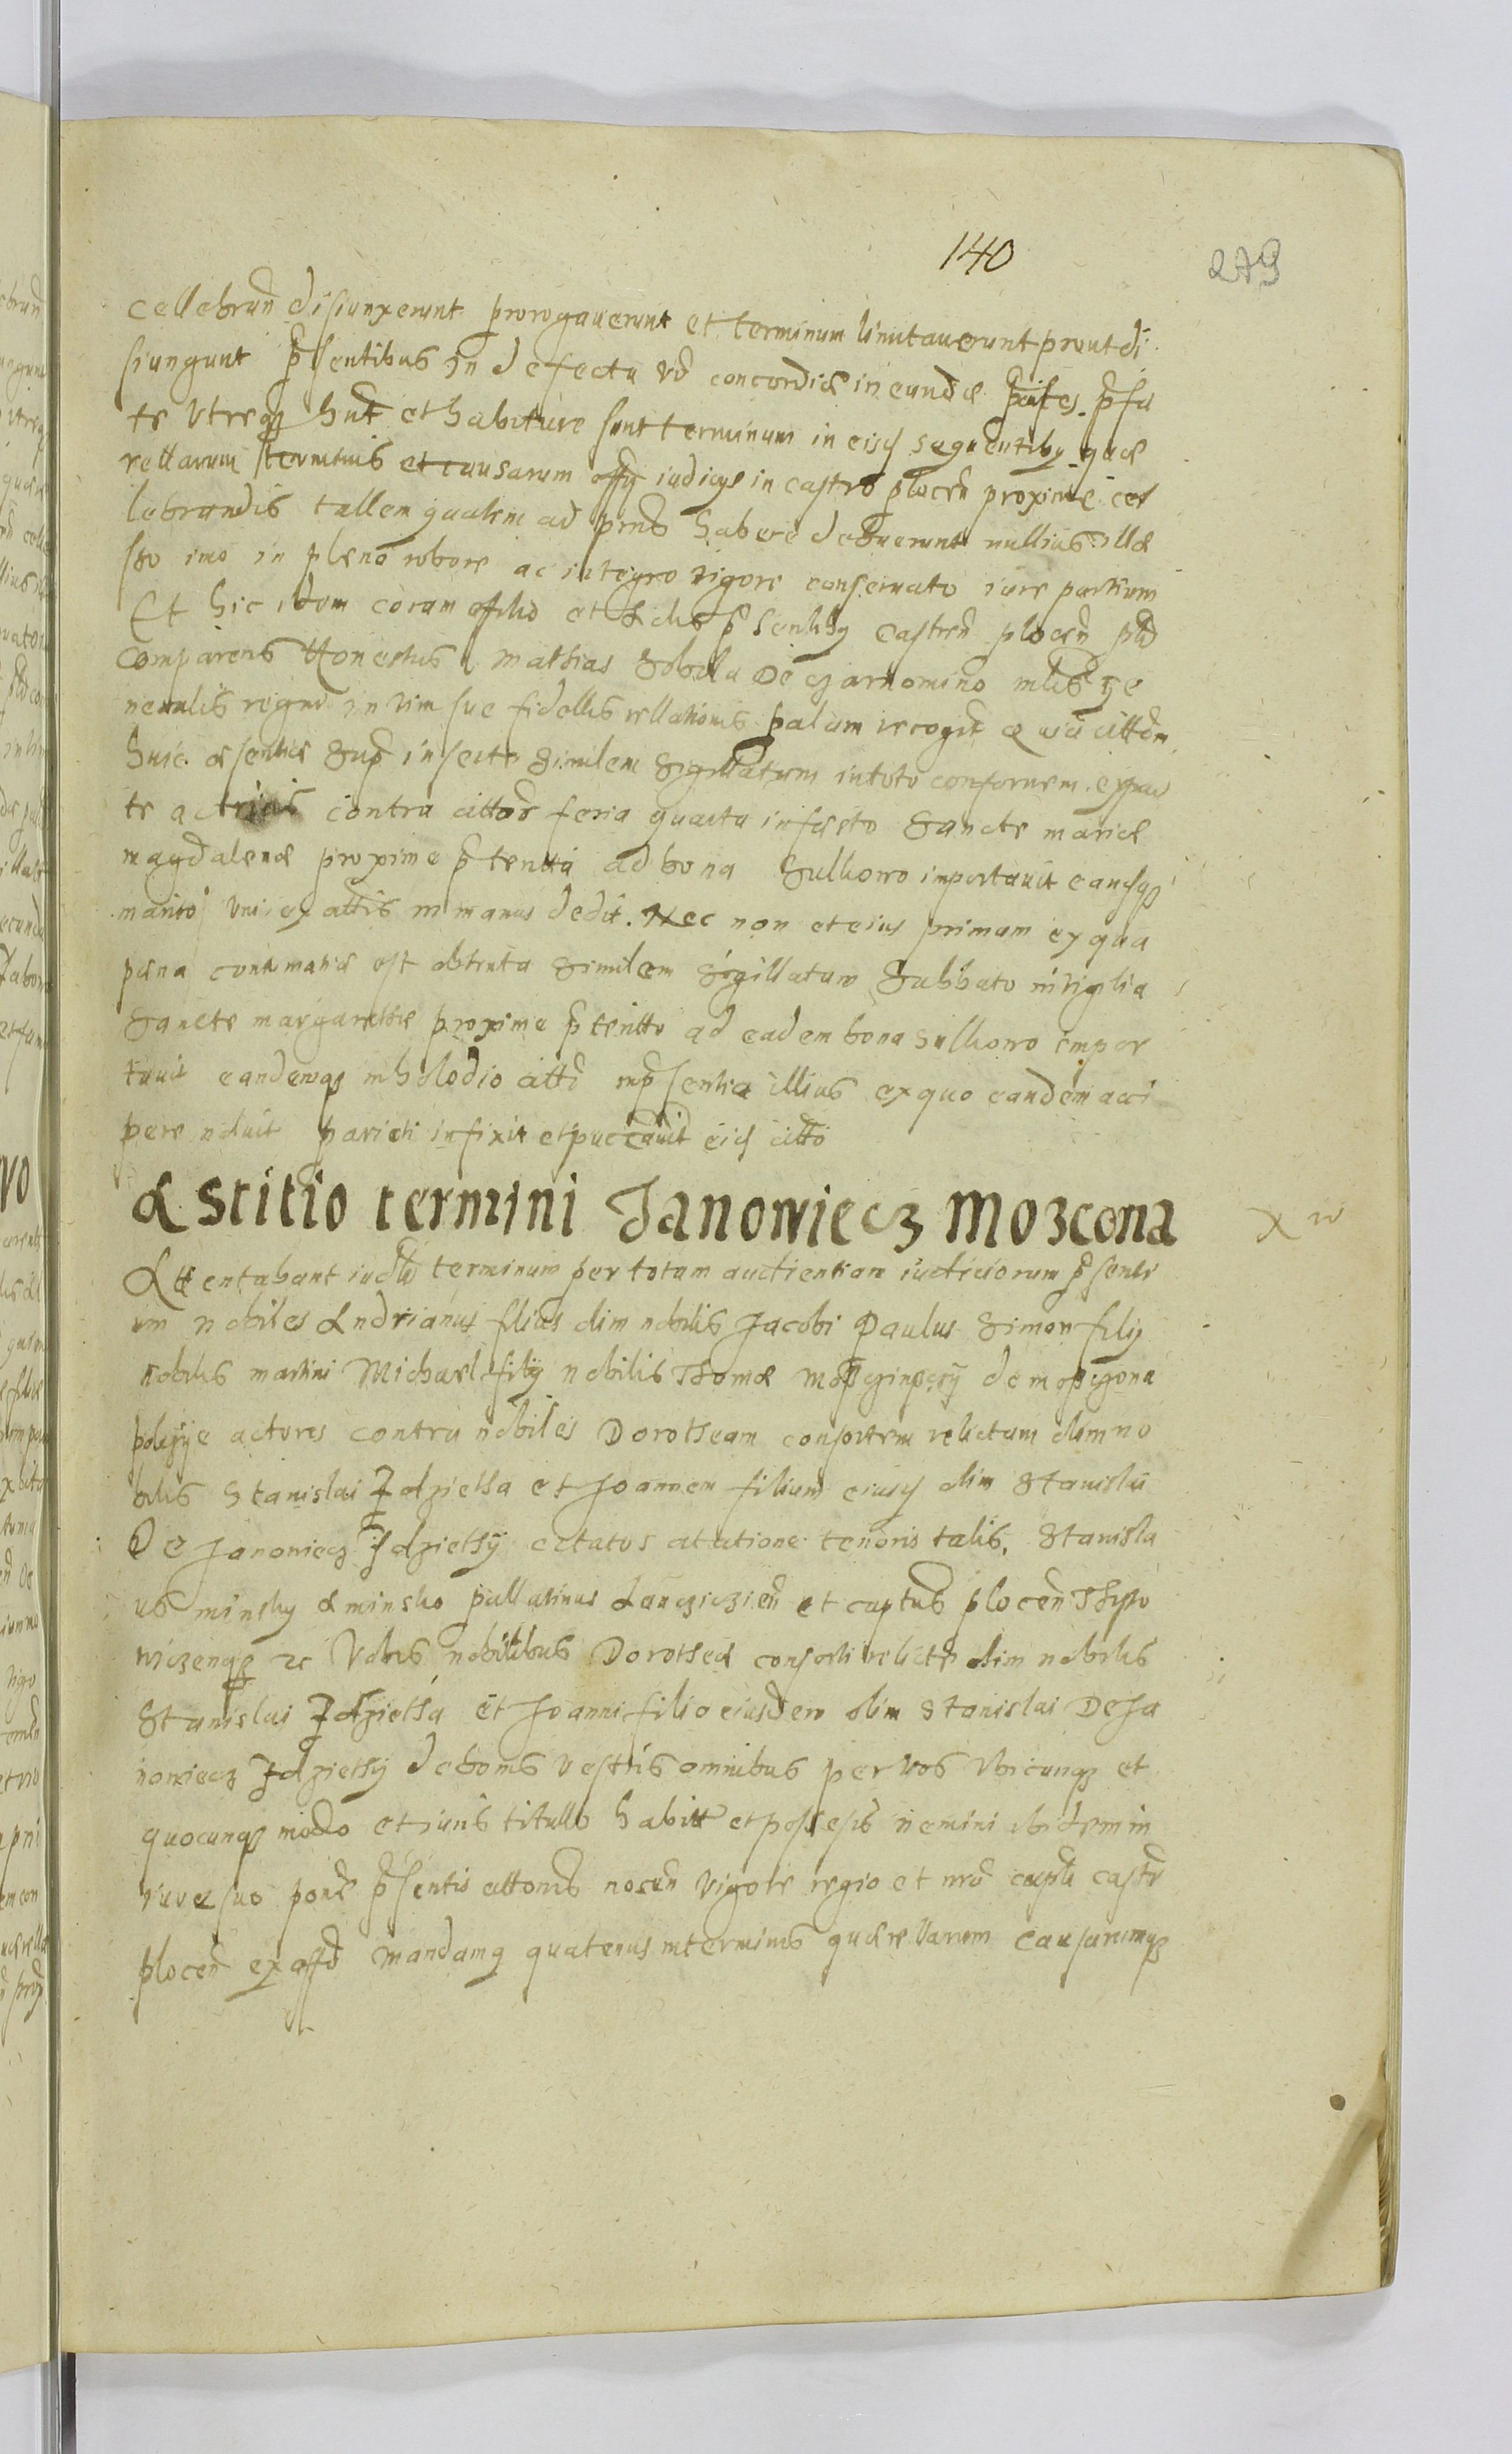 140
279
cellebrañ disiunxerunt prorogauerunt et terminum limitauerunt prout di
siungunt p̃sentibus in defectu v̊ concordiæ ineundæ p̃tes p̃fa
te vtreqꝫ hnt et habiture sunt terminum in eisꝫ sequentibꝫ quæ
rellarum terminis et causarum offij iudicijs in castro plocen̄ proxime cel
lebrandis tallem qualem ad prns habere debuerunt nullius illæ
so imo in pleno robore ac integro vigore conseruato iure partium
Et hic idem coram offitio et actis p̃sentibꝫ castren̄ plocen̄
comparens Honestus Mathias Sobala de czarnomino ge
neralis regni in vim sue fidellis rellationis palam recogt
huic absentiæ inserte similem sigillatam in toto conformem ex par
te actricis contra cittos feria quarta in festo Sancte mariæ
magdalenæ proxime p̃terita ad bona Sulkowo importauit eamqꝫ
manito vni ex cittis in manus dedit. Nec non et eius primam ex qua
pæna contumatiæ est obtenta similem sigillatam Sabbato in vigilia
Sancte margarethæ proxime p̃teritto ad eadem bona Sulkowo impor
tauit eandemqꝫ in p̃sentia illius ex quo eandem acci
pere noluit parieti infixit et eisꝫ citto
Astitio termini Janowiecz Mozcona
Attentabant terminum per totam audientiam iudiciorum p̃senti
um nobiles Andrianus filius olim nobilis Jacobi Paulus Simon filij
nobilis martini Michael filij nobilis Thomæ
actores contra nobiles Dorotheam consortem relictam olim no
bilis Stanislai Zdzietha et Joannem filium eiusꝫ olim Stanislai
De Janowiecz Zdziethij citatos citatione tenoris talis. Stanisla
us minsky a minsko pallatinus Lancziczien̄ et captus plocen̄
ꝛc Vobis nobilibus Dorotheæ consorti relictæ olim nobilis
Stanislai Zdzietha et Joanni filio eiusdem olim Stanislai De Ja
nowiecz Zdziethij de bonis vestris omnibus per vos vbicunqꝫ et
quocunqꝫ modo et iuris titullo habitt et possessis nemini ibidem in
iure suo p̃sentis attonis vigore regio et nr̄o castr̄
plocen̄ ex offo mandamꝫ quatenus in terminis quærellarum causarumqꝫ